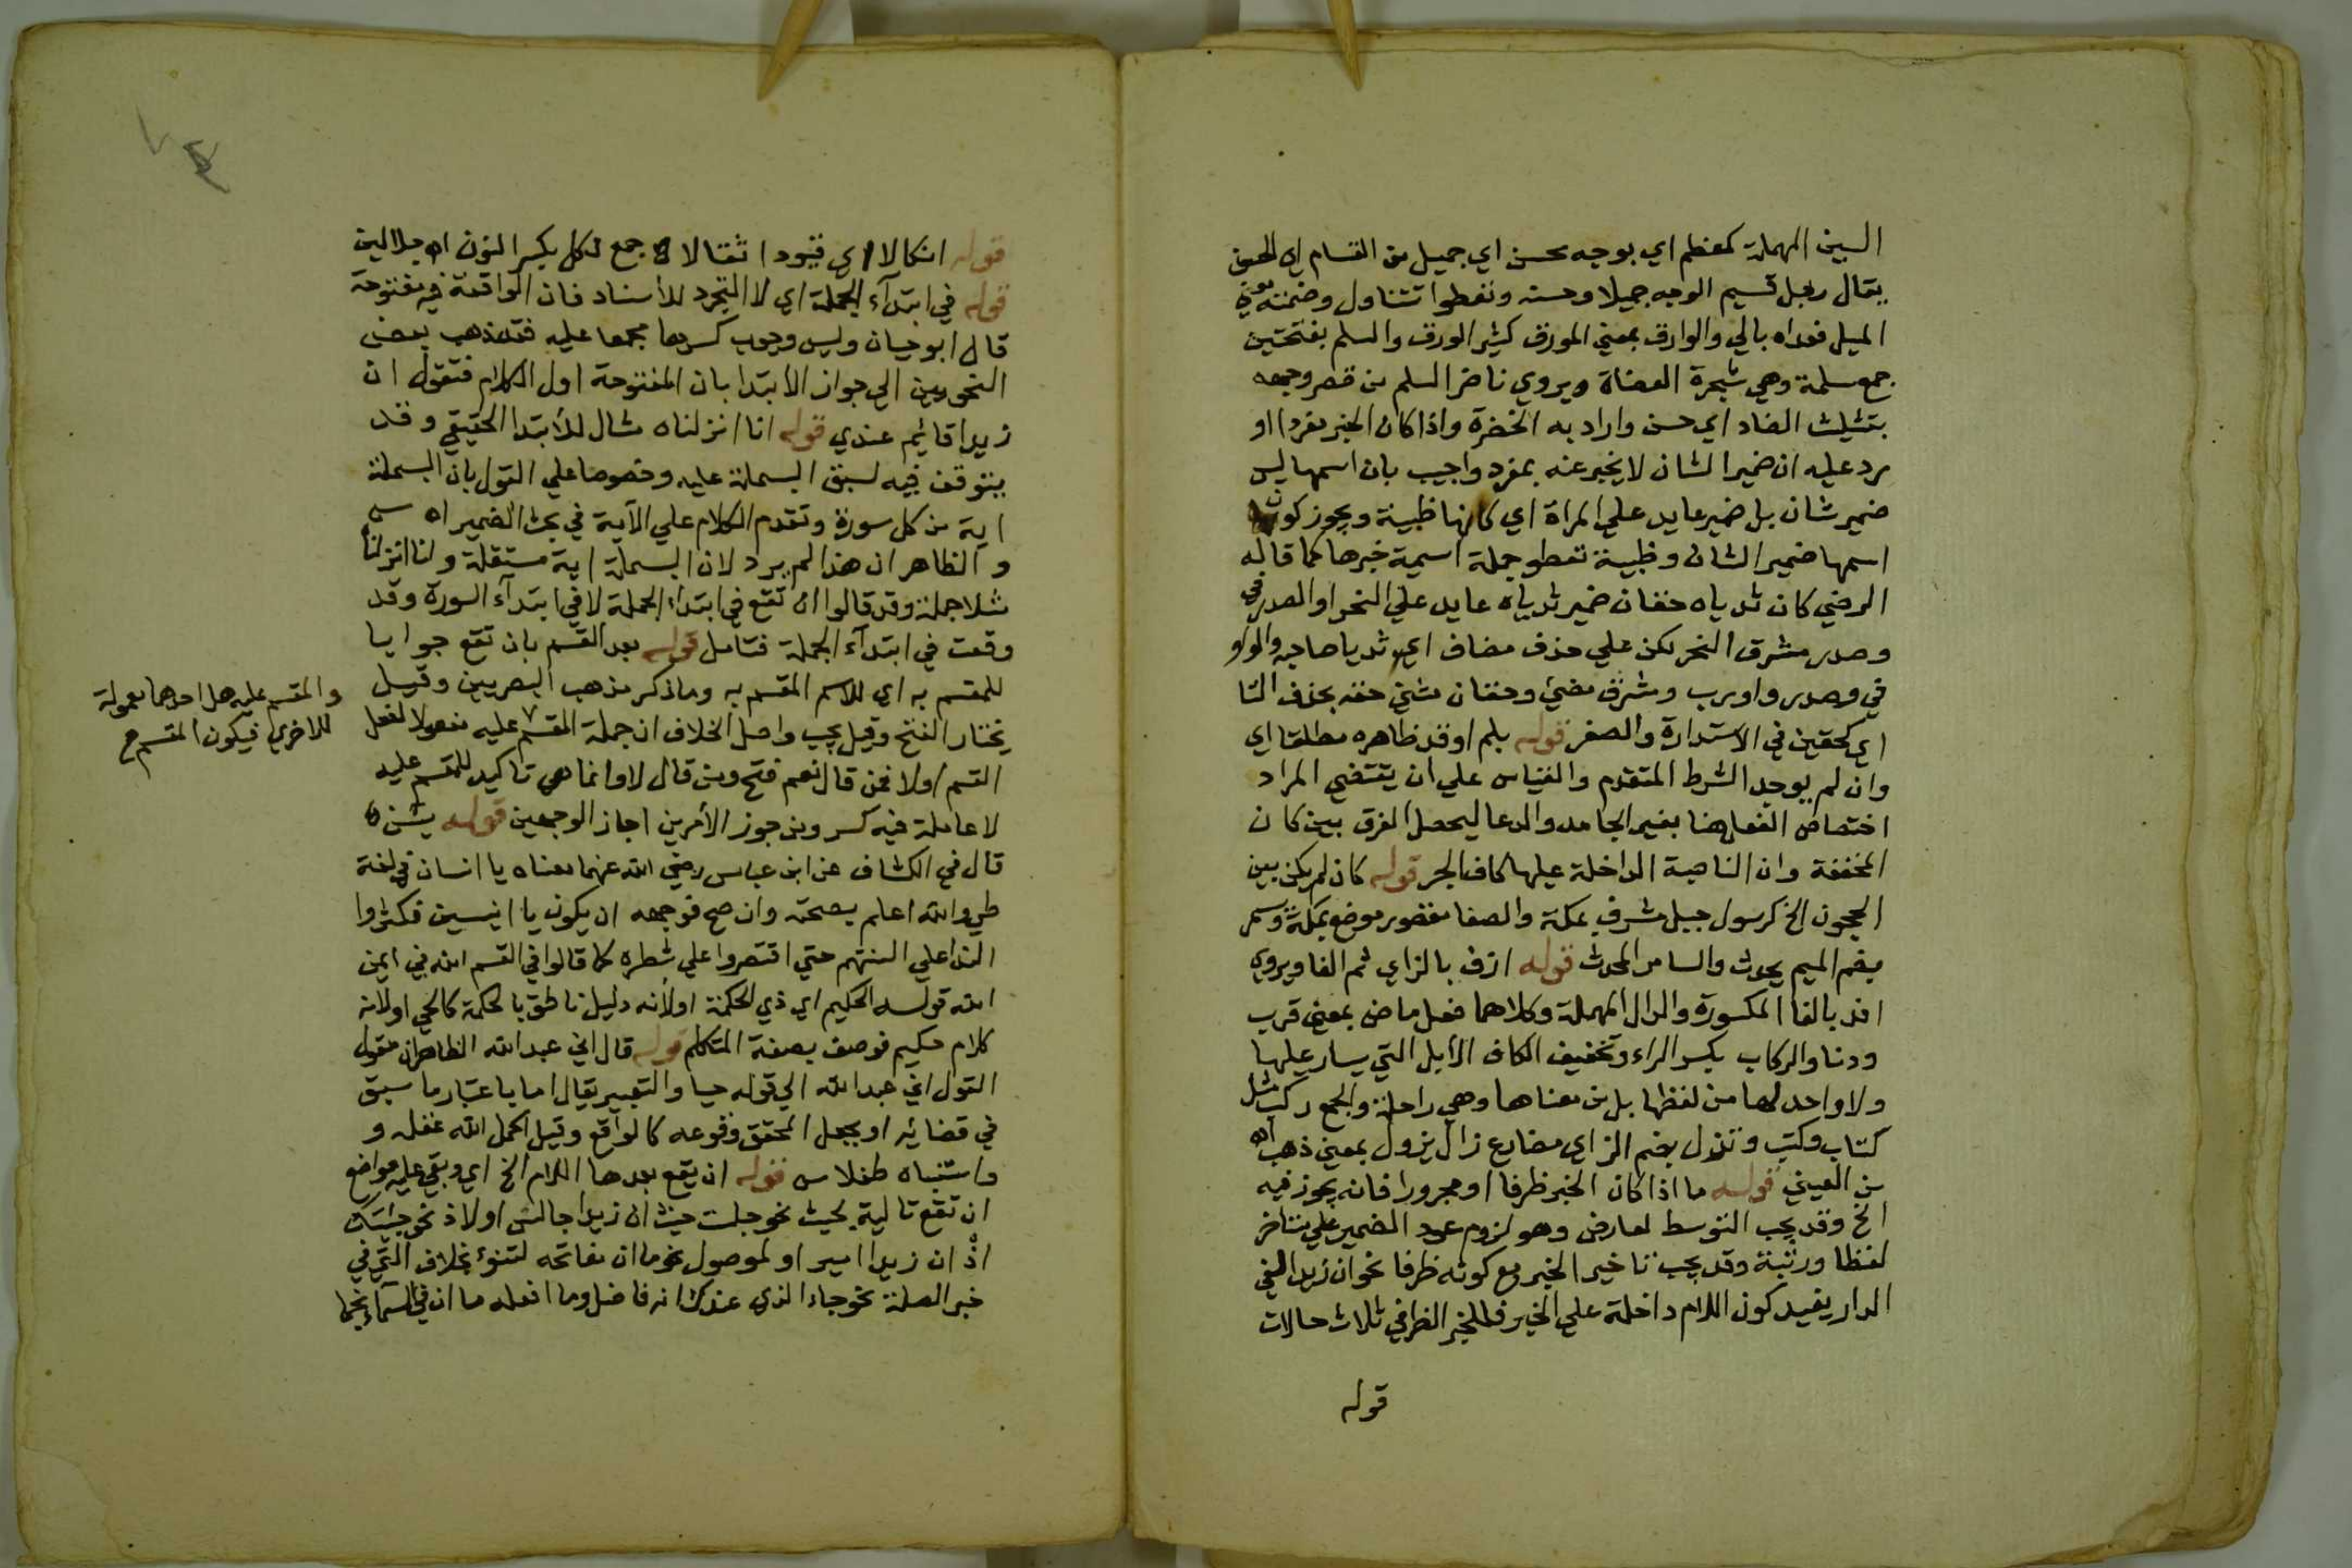 السين المهملة كمعظم اي بوجه محسن اي جميل من القسام اي الحسن
يقال رجل قسيم الوجه جميلا وحسنه وتعطوا تتناول وضمنه معني
الميل فعداه بالي والوارق بمعني المورق كثير الورق والسلم بفتحتين
جمع سلمة وهي شجرة العضاة ويروي ناضر السلم من نضر وجهه
بتثليث الضاد اي حسن واراد به الخضرة واذا كان الخبر مفردا او
يرد عليه ان ضمير الشان لا يخبر عنه بمفرد واجيب بان اسمها ليس
ضمير شان بل ضمير عايد علي المراة اي كانها ظبية ويجوز كون
اسمها ضمير الشان وظبية تعطو جملة اسمية خبرها كما قاله
الرضي كان ثدياه حقان ضمير ثدياه عايد علي النحر او الصدر في
وصدر مشرق النحر لكن علي حذف مضاف اي ثديا صاحبه والواو
في وصدر واو رب ومشرق مضيء وحقان مثني حقه بحذف التا
اي كحقين في الاستدارة والصغر قوله بلم او قد ظاهره مطلقا اي
وان لم يوجد الشرط المتقدم والقياس علي ان يقتضي المراد
اختصاص الفعل هنا بغير الجامد والدعا ليحصل الفرق بين كان
المخففة وان الناصبة الداخلة عليها كاف الجر قوله كان لم يكن بين
الحجون الخ كرسول جبل مشرف بمكة والصفا مقصور موضع بمكة وسمر
بضم الميم يحدث والسامر المحدث قوله ازف بالزاي ثم الفا ويروي
افد بالفا المكسورة والدال المهملة وكلاهما فعل ماض بمعني قرب
ودنا والركاب بكسر الراء وتخفيف الكاف الابل التي يسار عليها
ولا واحد لها من لفظها بل من معناها وهي راحلة والجمع ركب مثل
كتاب وكتب وتزل بضم الزاي مضارع زال يزول بمعني ذهب اه
من العيني قوله ما اذا كان الخبر ظرفا او مجرورا فانه يجوز فيه
الخ وقد يجب التوسط لعارض وهو لزوم عود الضمير علي متاخر
لفظا ورتبة وقد يجب تاخير الخبر مع كونه ظرفا نحو ان زيدا لفي
الدار يفيد كون اللام داخلة علي الخبر فللخبر الظرفي ثلاث حالات
قوله
قوله انكالا اي قيودا ثقالا جمع نكل بكسر النون اه جلالين
قوله في ابتدآء الجملة اي لا التجرد للاسناد فان الواقعة فيه مفتوحة
قال ابو حيان وليس وجوب كسرها مجمعا عليه فقد ذهب بعض
النحويين الي جواز الابتدا بان المفتوحة اول الكلام فتقول ان
زيدا قايم عندي قوله انا انزلناه مثال للابتدا الحقيقي وقد
يتوقف فيه لسبق البسملة عليه وخصوصا علي القول بان البسملة
اية من كل سورة وتقدم الكلام علي الآية في بحث الضمير اه س
والظاهر ان هذا لم يرد لان البسملة اية مستقلة وانا انزلنا
مثلا جملة وقد قالوا ان تقع في ابتداء الجملة لا في ابتدآء السورة وقد
وقعت في ابتدآء الجملة فتامل قوله بعد القسم بان تقع جوابا
للمقسم به اي للاسم المقسم به وما ذكر مذهب البصريين وقيل
يختار الفتح وقيل يجب واصل الخلاف ان جملة المقسم عليه مفعولا لفعل
القسم اولا فمن قال نعم فتح ومن قال لا وانما هي تاكيد للمقسم عليه
لا عاملة فيه كسر ومن جوز الامرين اجاز الوجهين قوله يس ن
قال في الكشاف عن ابن عباس رضي الله عنهما معناه يا انسان في لغة
طي والله اعلم بصحته وان صح فوجهه ان يكون يا انيسين فكثروا
الندا علي السنتهم حتي اقتصروا علي شطره كما قالوا في القسم م الله في ايمن
الله قوله الحكيم اي ذي الحكمة او لانه دليل ناطق بالحكمة كالحي او لانه
كلام حكيم فوصف بصفة المتكلم قوله قال اني عبد الله الظاهر ان مقول
القول اني عبد الله الي قوله حيا والتعبير يقال اما باعتبار ما سبق
في قضائه او بجعل المحقق وقوعه كالواقع وقيل اكمل الله عقله و
واستنباه طفلا س قوله ان يقع بعدها اللام الخ اي وبقي عليه مواضع
ان تقع تالية لحيث نحو جلست حيث ان زيدا جالس او لاذ نحو جيتك
اذ ان زيدا امير او لموصول نحو ما ان مفاتحه لتنوء بخلاف التي في
خبر الصلة نحو جاء الذي عندك انه فاضل وما افعله ما ان في السماء نجما
والمقسم عليه هل احدهما معمولة
للاخري فيكون المقسم ح